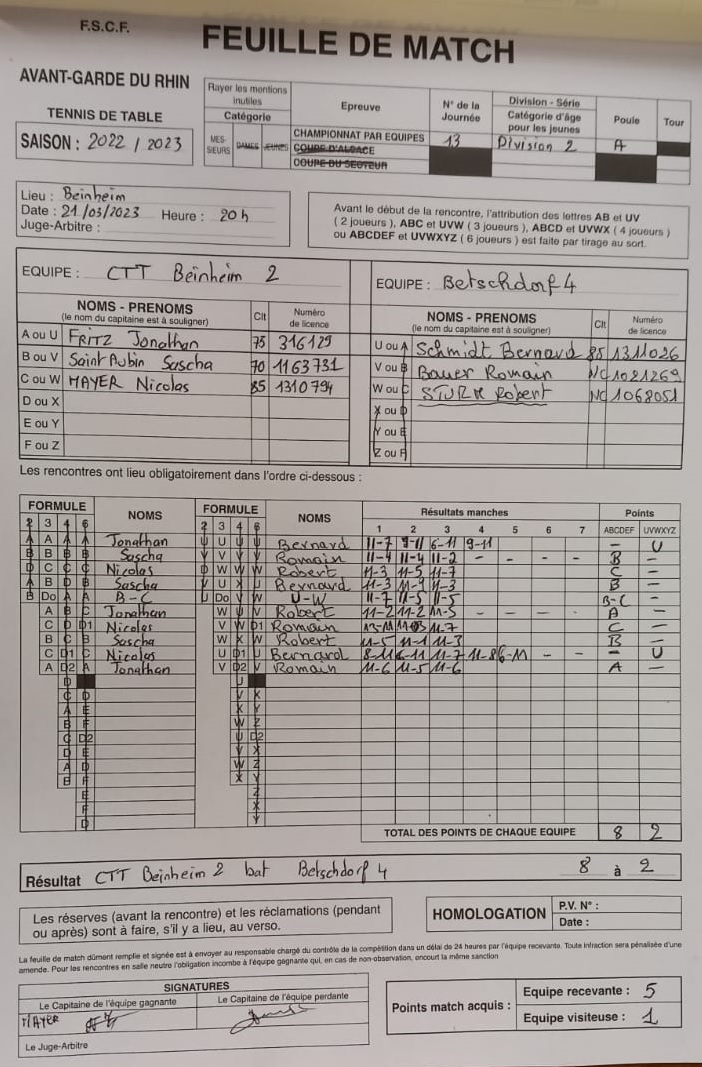 F.S.C.F.
FEUILLE DE MATCH
AVANT-GARDE DU RHIN
TENNIS DE TABLE
SAISON : 2022 / 2023
Rayer les mentions inutiles
Catégorie
MES-SIEURS DAMES JEUNES
Epreuve
CHAMPIONNAT PAR EQUIPES
COUPE D'ALSACE
COUPE DU SECTEUR
N° de la Journée
13
Division - Série
Catégorie d'âge pour les jeunes
Division 2
Poule
A
Tour
Lieu : Beinheim
Date : 21/03/2023 Heure : 20h
Juge-Arbitre :
Avant le début de la rencontre, l'attribution des lettres AB et UV
( 2 joueurs ), ABC et UVW ( 3 joueurs ), ABCD et UVWX ( 4 joueurs )
ou ABCDEF et UVWXYZ ( 6 joueurs ) est faite par tirage au sort.
EQUIPE : CTT Beinheim 2
NOMS - PRENOMS Clt Numéro
(le nom du capitaine est à souligner) de licence
A ou U FRITZ Jonathan 75 316129
B ou V Saint Aubin Sascha 70 1163731
C ou W MAYER Nicolas 85 1310794
D ou X
E ou Y
F ou Z
EQUIPE : Betschdorf 4
NOMS - PRENOMS Clt Numéro
(le nom du capitaine est à souligner) de licence
U ou A Schmidt Bernard 85 1311026
V ou B Bauer Romain NC 1081269
W ou C STURM Robert NC 1068051
X ou D
Y ou E
Z ou F
Les rencontres ont lieu obligatoirement dans l'ordre ci-dessous :
FORMULE NOMS FORMULE NOMS Résultats manches Points
2 3 4 6 2 3 4 6 1 2 3 4 5 6 7 ABCDEF UVWXYZ
A A A A Jonathan U U U U Bernard 11-7 9-11 6-11 9-11 - U
B B B B Sascha V V V V Romain 11-4 11-4 11-2 - - - - B -
D C C C Nicolas D W W W Robert 11-3 11-5 11-7 C -
A B D B Sascha V U X U Bernard 11-3 11-9 11-3 B -
B Do A A B-C U Do V V U-W 11-7 11-5 11-5 B-C -
A B C Jonathan W U W Robert 11-2 11-2 11-5 - - - - A -
C D D1 Nicolas V W D1 Romain 13-11 11-03 11-7 C -
B C B Sascha W X W Robert 11-5 11-1 11-3 B -
C D1 C Nicolas U D1 U Bernard 8-11 6-11 11-7 11-8 6-11 - - - U
A D2 A Jonathan V D2 V Romain 11-6 11-5 11-6 A -
D U
C D V X
A E U Y
B F W Z
C D2 U D2
D E V X
A D W Z
B F X Y
E Z
F X
D Y
TOTAL DES POINTS DE CHAQUE EQUIPE 8 2
Résultat CTT Beinheim 2 bat Betschdorf 4 8 à 2
Les réserves (avant la rencontre) et les réclamations (pendant
ou après) sont à faire, s'il y a lieu, au verso.
HOMOLOGATION
P.V. N° :
Date :
La feuille de match dûment remplie et signée est à envoyer au responsable chargé du contrôle de la compétition dans un délai de 24 heures par l'équipe recevante. Toute infraction sera pénalisée d'une
amende. Pour les rencontres en salle neutre l'obligation incombe à l'équipe gagnante qui, en cas de non-observation, encourt la même sanction
SIGNATURES
Le Capitaine de l'équipe gagnante Le Capitaine de l'équipe perdante
MAYER
Le Juge-Arbitre
Points match acquis :
Equipe recevante : 5
Equipe visiteuse : 1